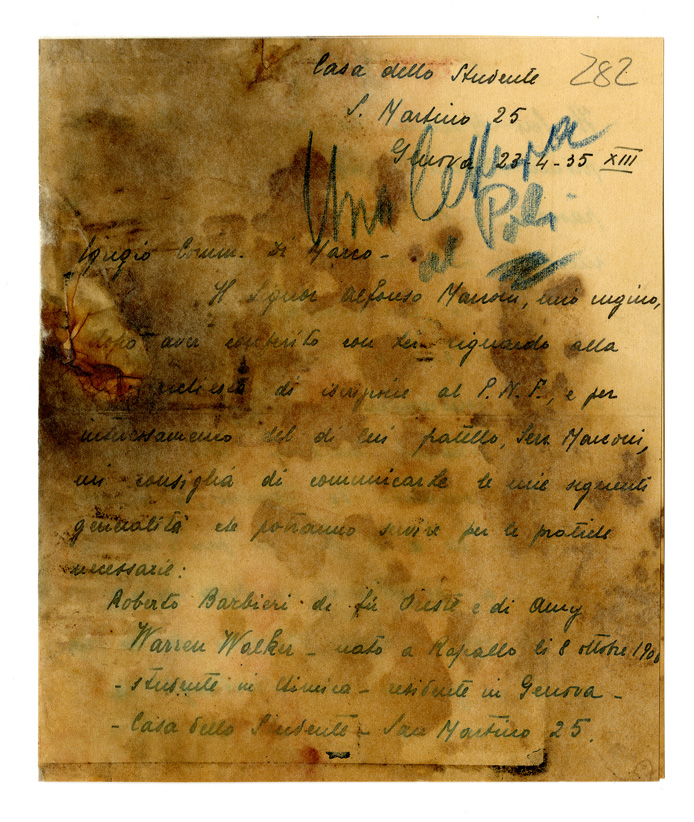 Casa dello Studente
282
S. Martino 25
Genova 23-4-35 XIII
Una
al
Egregio Comm. Di Marco -
Il Signor Alfonso Marconi, mio cugino,
dopo aver conferito con Lei riguardo alla
richiesta di iscrizione al P.N.F., e per
interessamento del di Lui fratello, Sen. Marconi,
mi consiglia di comunicarle le mie seguenti
generalità che potranno servire per le pratiche
necessarie:
Roberto Barbieri di fu Oreste e di Amy
Warren Walker - nato a Rapallo li 8 ottobre
- studente in Chimica - residente in Genova -
- Casa dello Studente - San Martino 25.